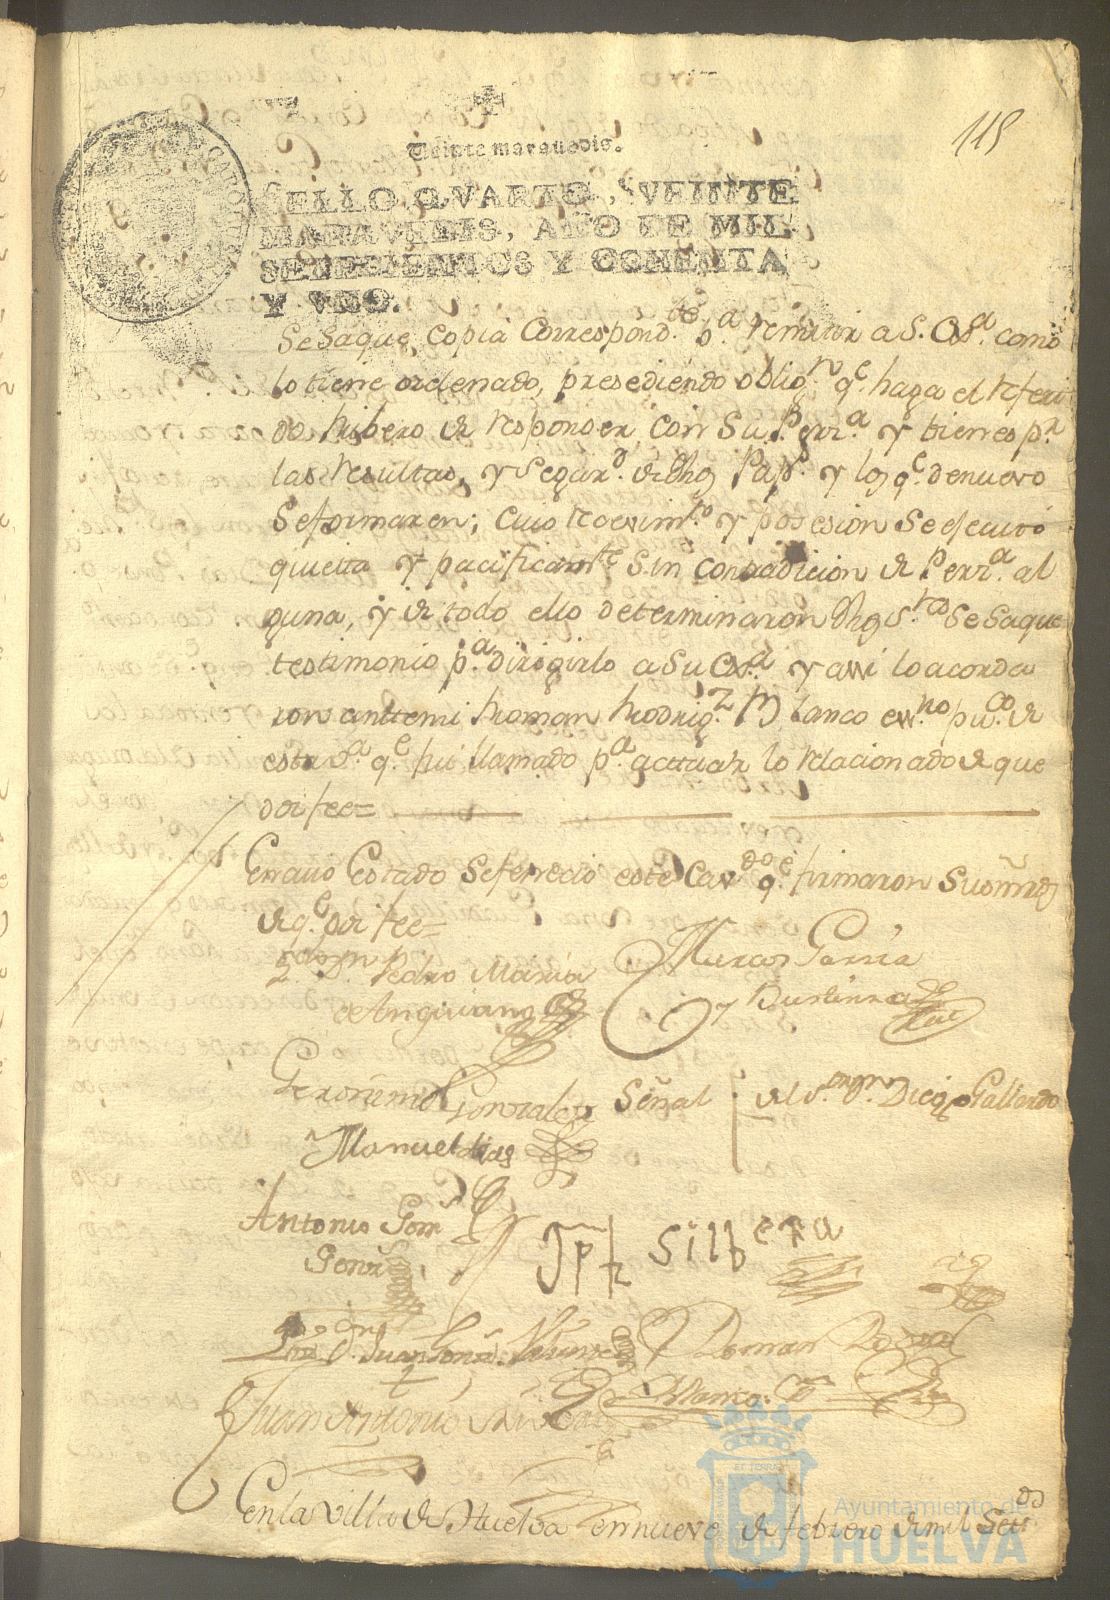 115
Veinte maravedis.
SELLO QVARTO, VEINTE
MARAVEDIS, AÑO DE MIL
SETECIENTOS Y
Y VNO.
Se Saque, copia Correspond.te p.a remitir a S. Ex.a como
lo tiene ordenado, presediendo oblig.n q.e haga el referi
do Ribero de responder con Su Perz.a y bienes p.a
las resultas, y Segur.d de dhos Pap.s y los q.e de nuevo
Se formaren; cuio resevim.to y posesion Se efecutó
quietta y pacificam.te Sin contradicion de Perz.a al
guna, y de todo ello determinaron dhos S.res Se Saque
testimonio p.a dirigirlo a Su Ex.a y assi lo acorda
ron anttemi Roman Rodrig.z Blanco ess.no pu.co de
esta v.a q.e fui llamado p.a actuar lo relacionado de que
doi fee=
En cuio Estado Se feneció este Cav.do q.e firmaron Sus mrds
de q.e doi fee=
D. Pedro Maria
de Anguiano
Marcos Garcia
y Bustinza
Geronimo Gonzales
Señal del S.r D. Diego Gallardo
Manuel dias
Antonio Gom
Gonz
Jph Silbera
D. Juan
Roman Rodrig
Blanco
Juan Antonio
En la Villa de Huelva en nueve de febrero de mil Sett.os
Ayuntamiento de
HUELVA